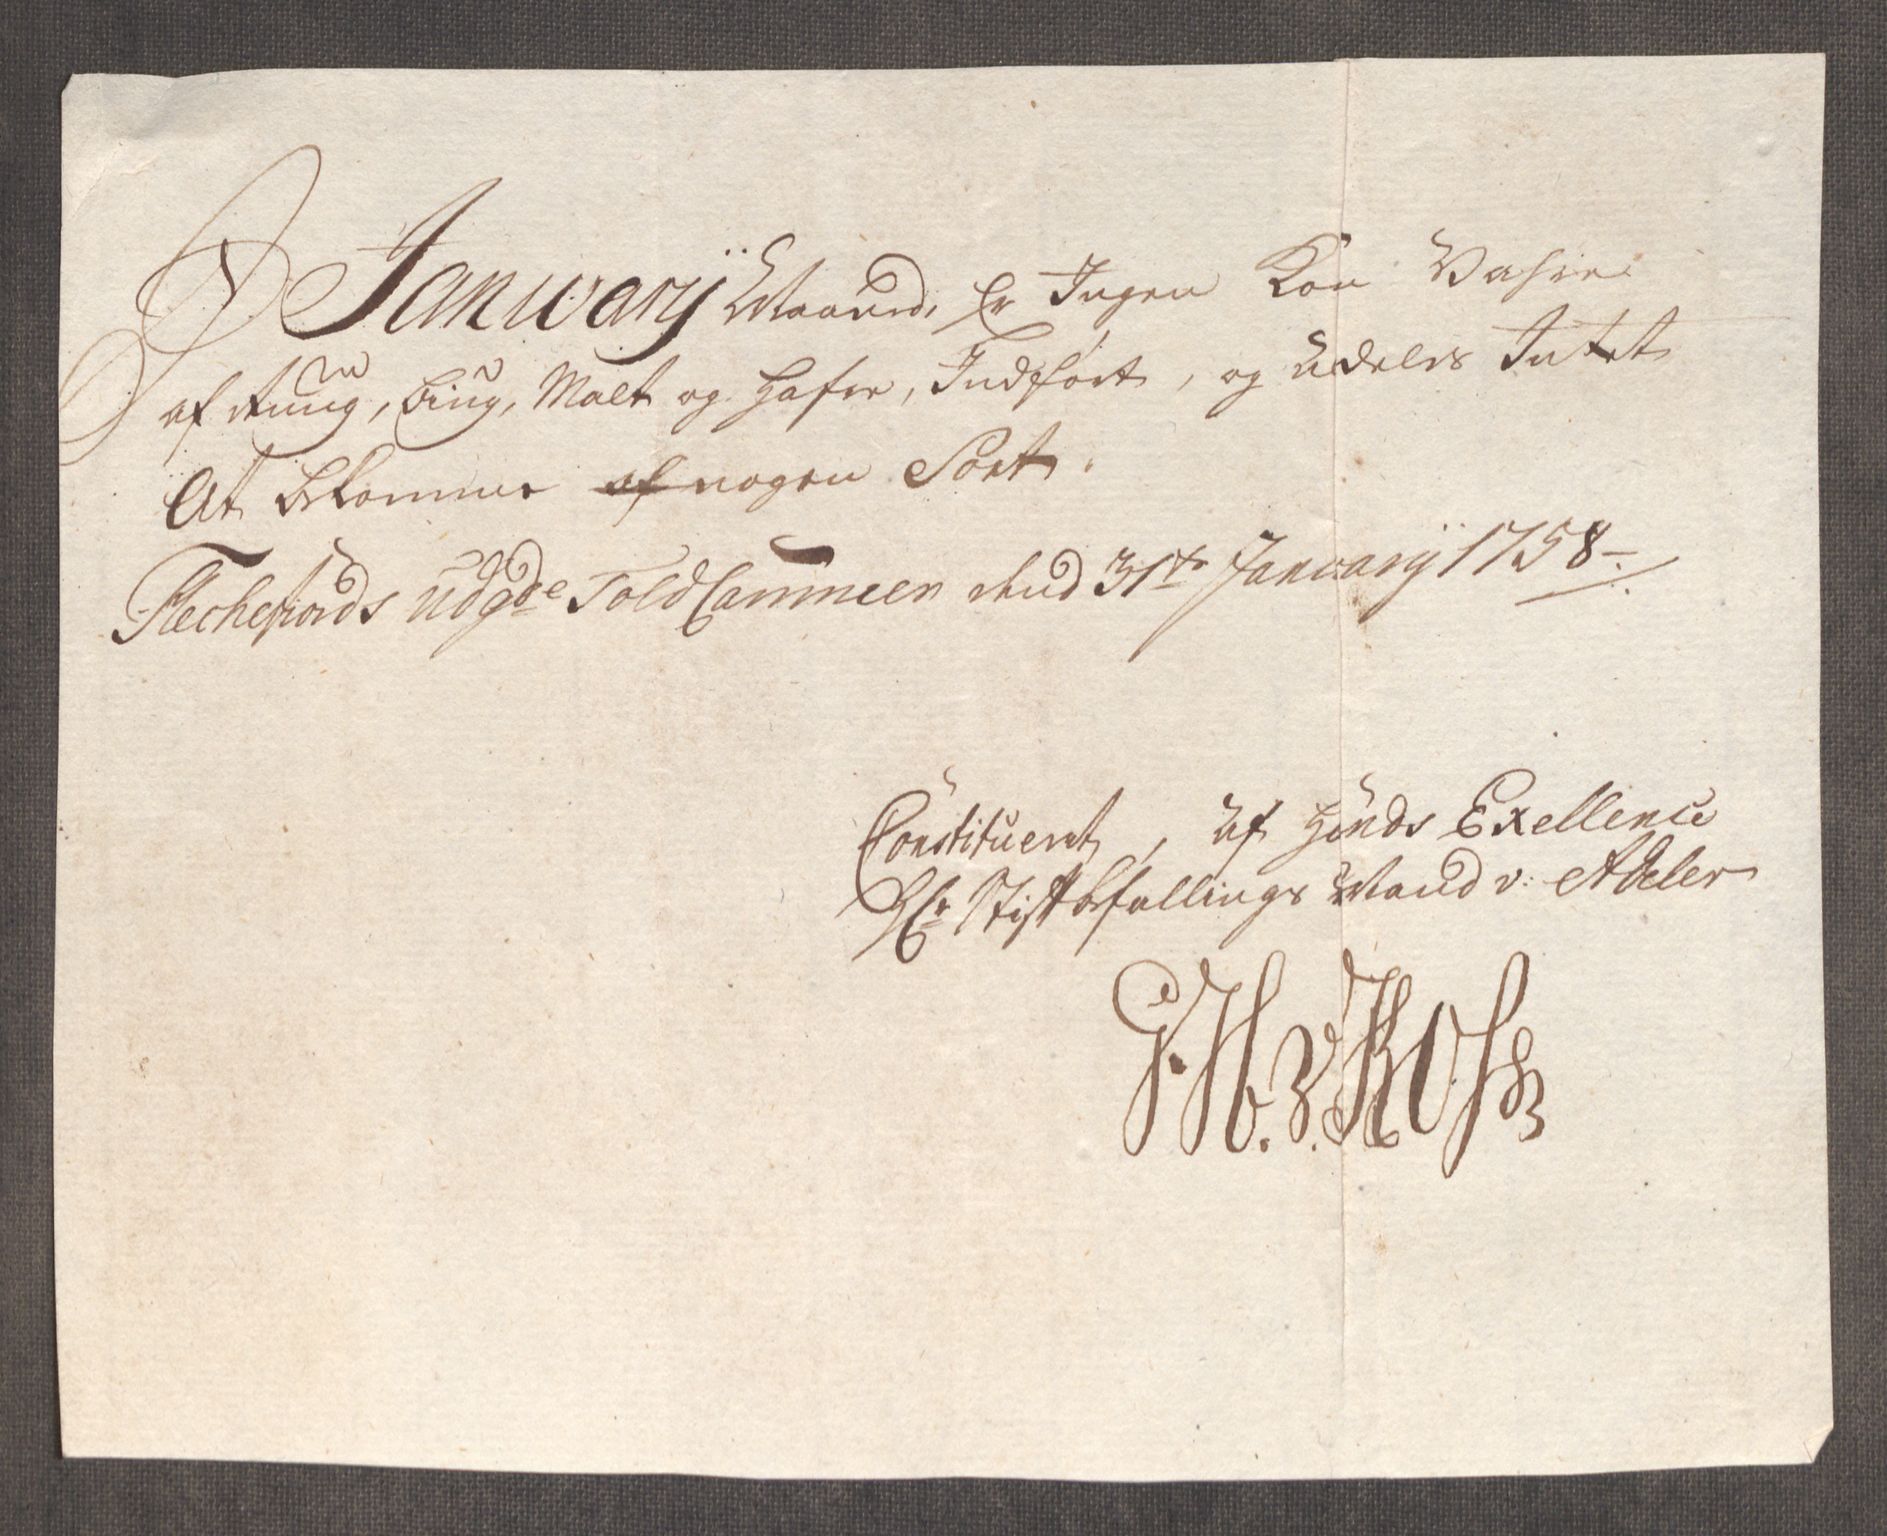 I Januarij Maaned, Er Ingen Kon Vahre
af Rúúg, Biúg, Malt og Hafre, Indfört, og udeles Intet
At bekomme af nogen Sort.
Flechefiords Udgde Told Cammer dend 31te Januarij 1758
Constitueret, af Hands Exellence
Hr Stiftbefallings Mand v: Adeler
J. H. v. Koss